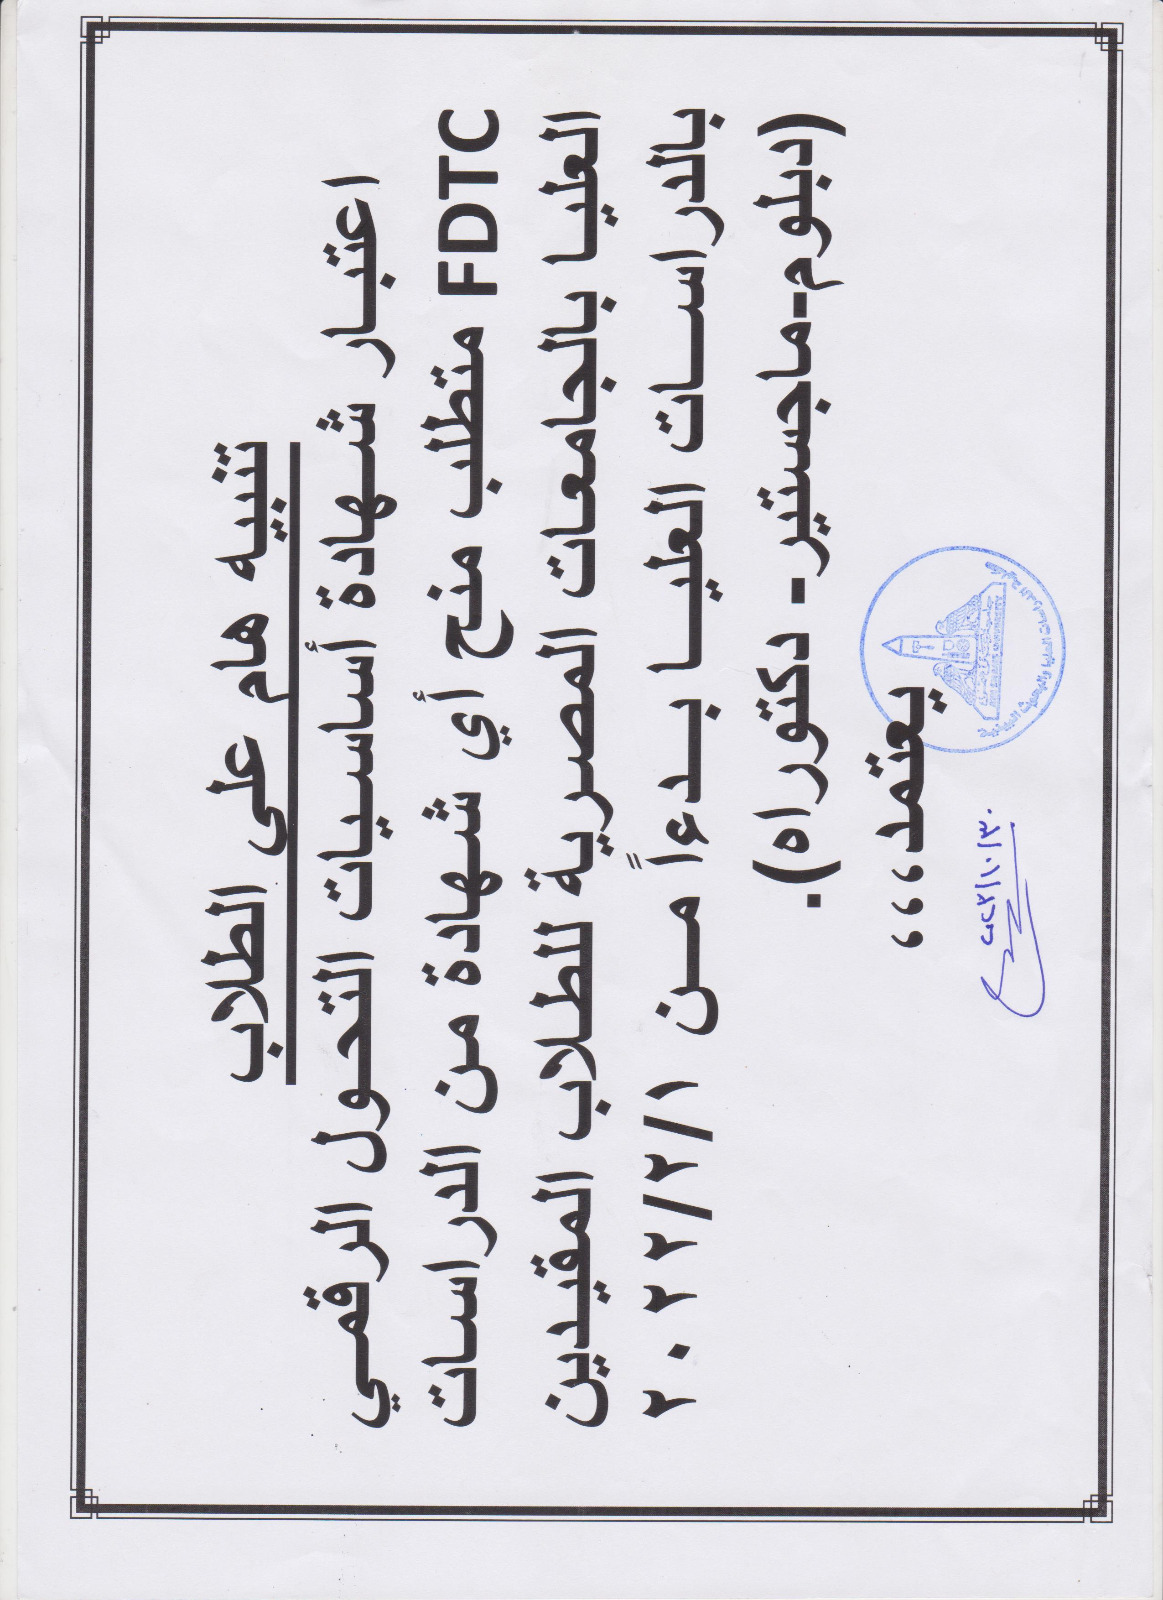 تنبيه هام على الطلاب
اعتبار شهادة أساسيات التحول الرقمي
FDTC متطلب منح أي شهادة من الدراسات
العليا بالجامعات المصرية للطلاب المقيدين
بالدراسات العليا بدءاً من ٢٠٢٢/٢/١
(دبلوم-ماجستير- دكتوراه).
يعتمد،،،
٢٠٢٣/١٠/٣٠
AIN SHAMS UNIVERSITY
كلية الدراسات العليا والبحوث البيئية